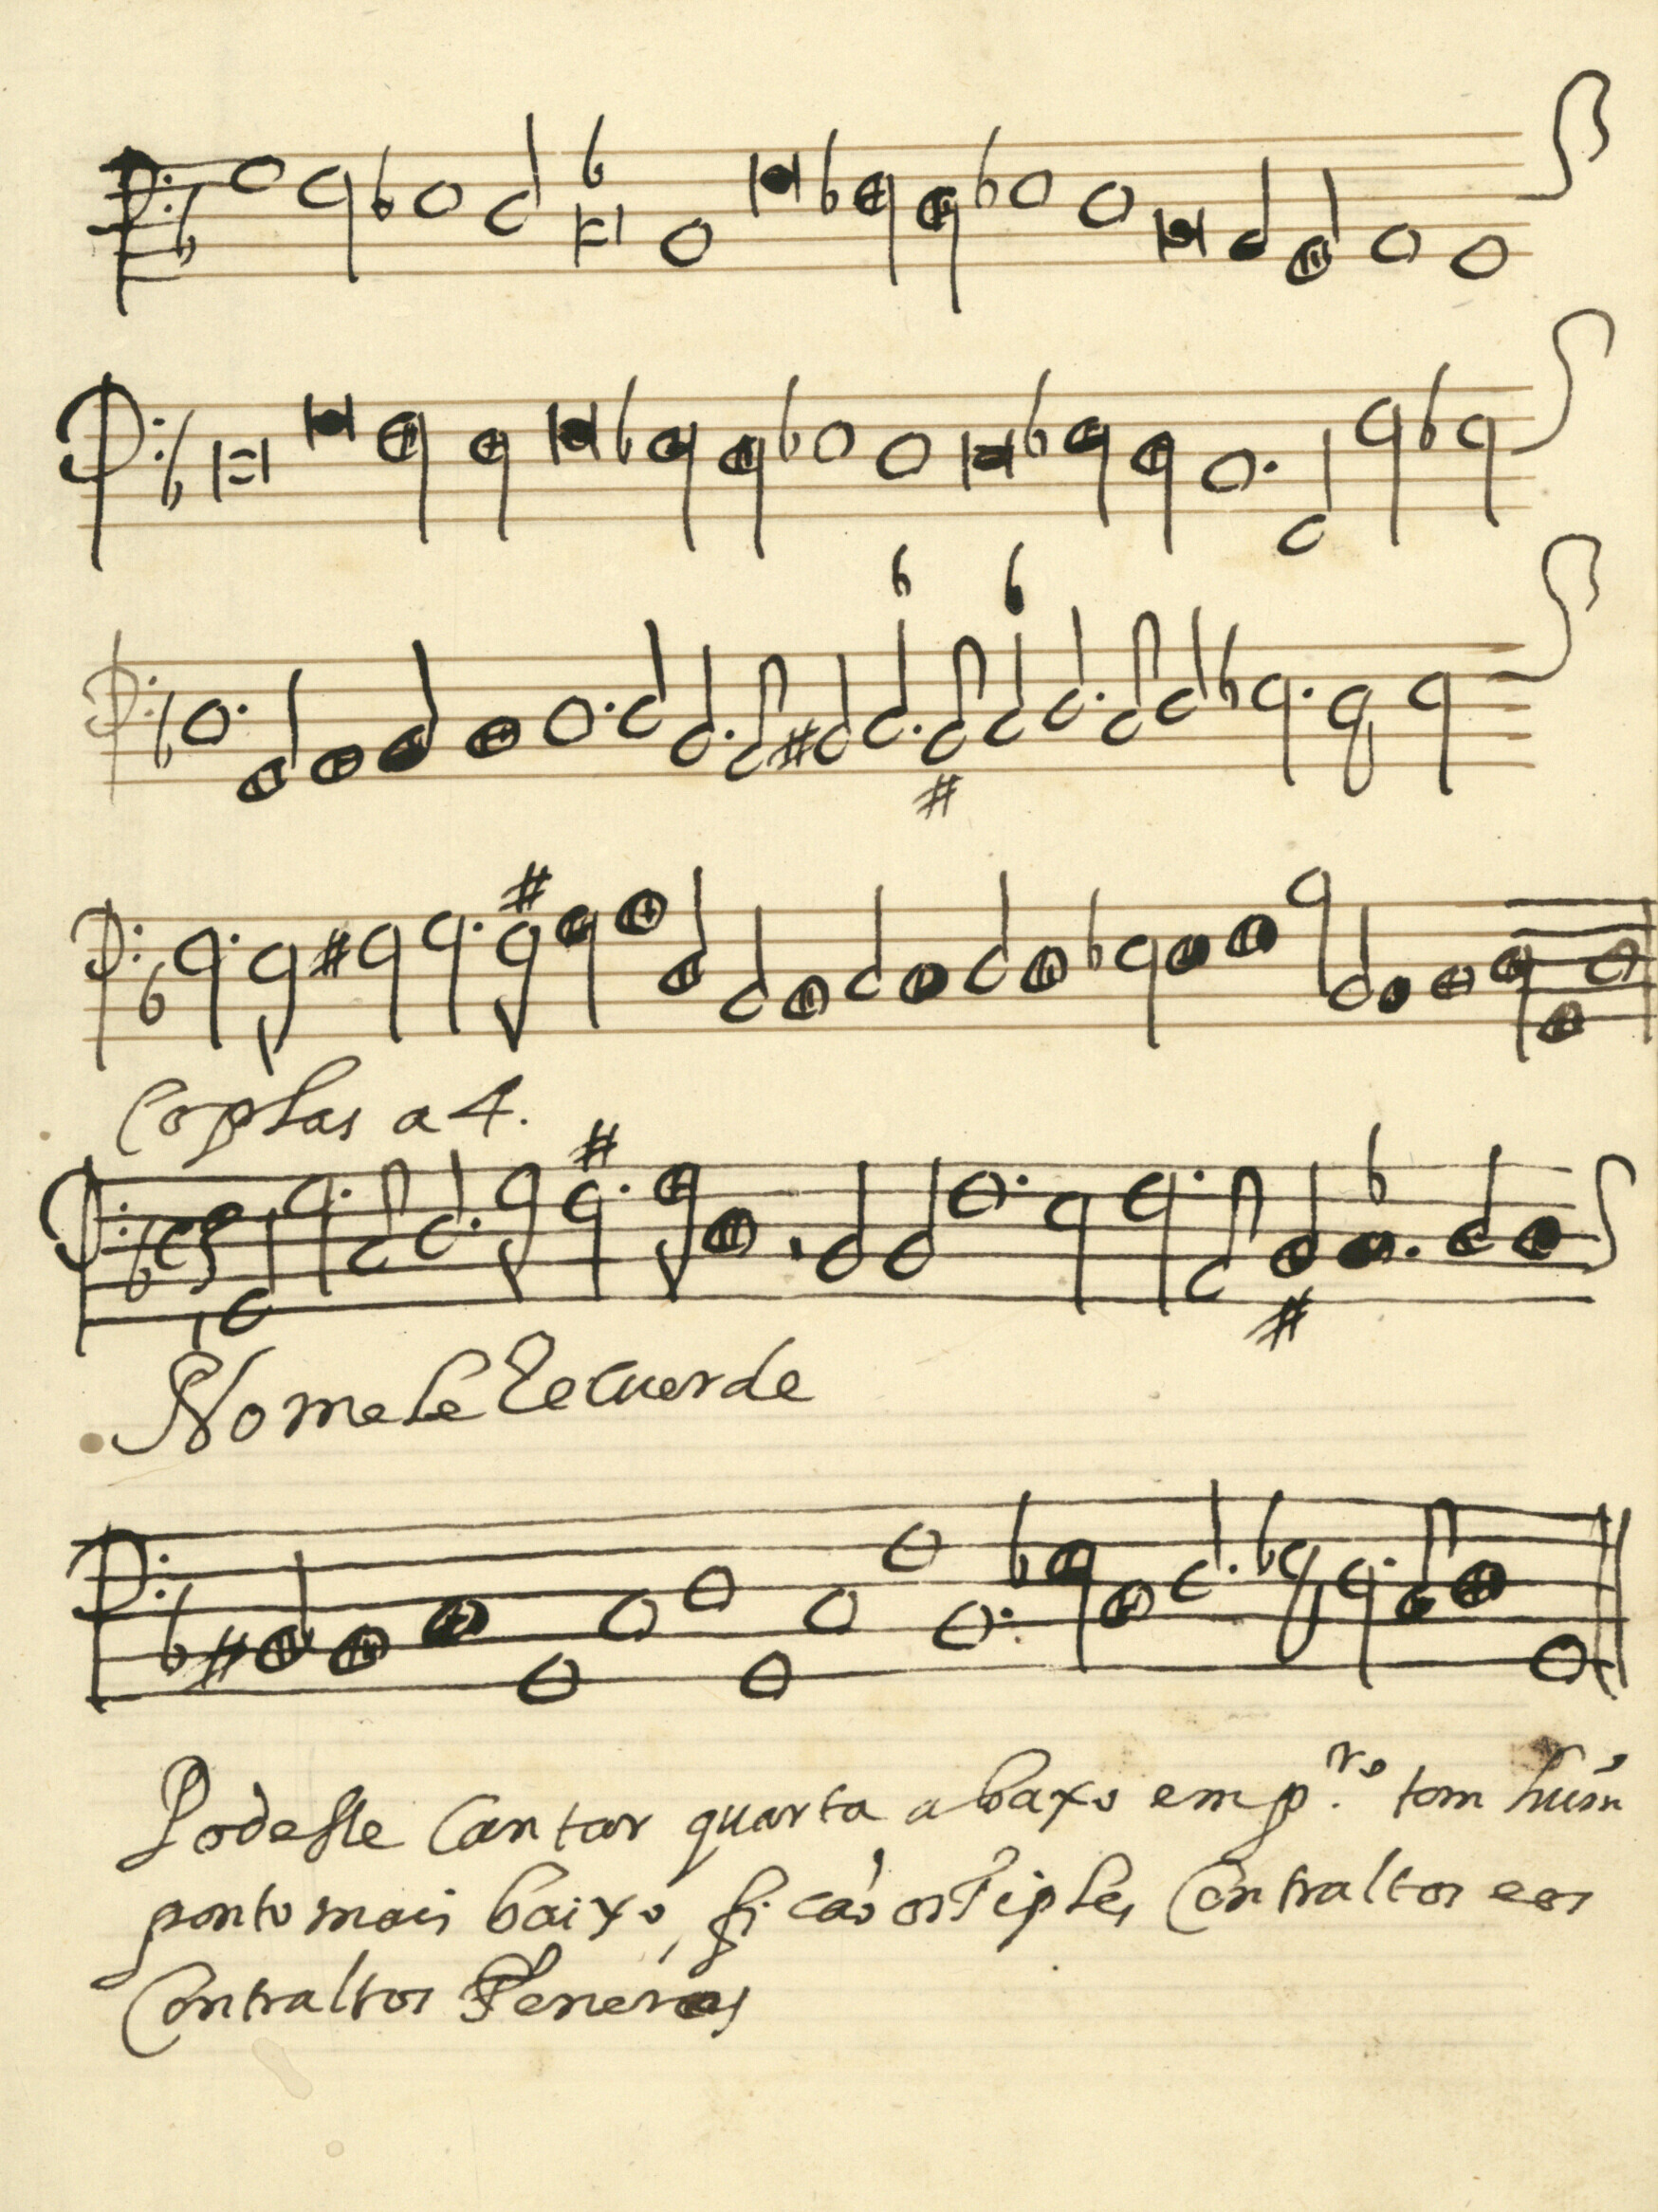 Coplas a 4.
No me le Recuerde
Podesse Cantar quarta abaxo em p.ro tom hũm
ponto mais baixo, ficão os Tiples Contraltos e os
Contraltos Tenores